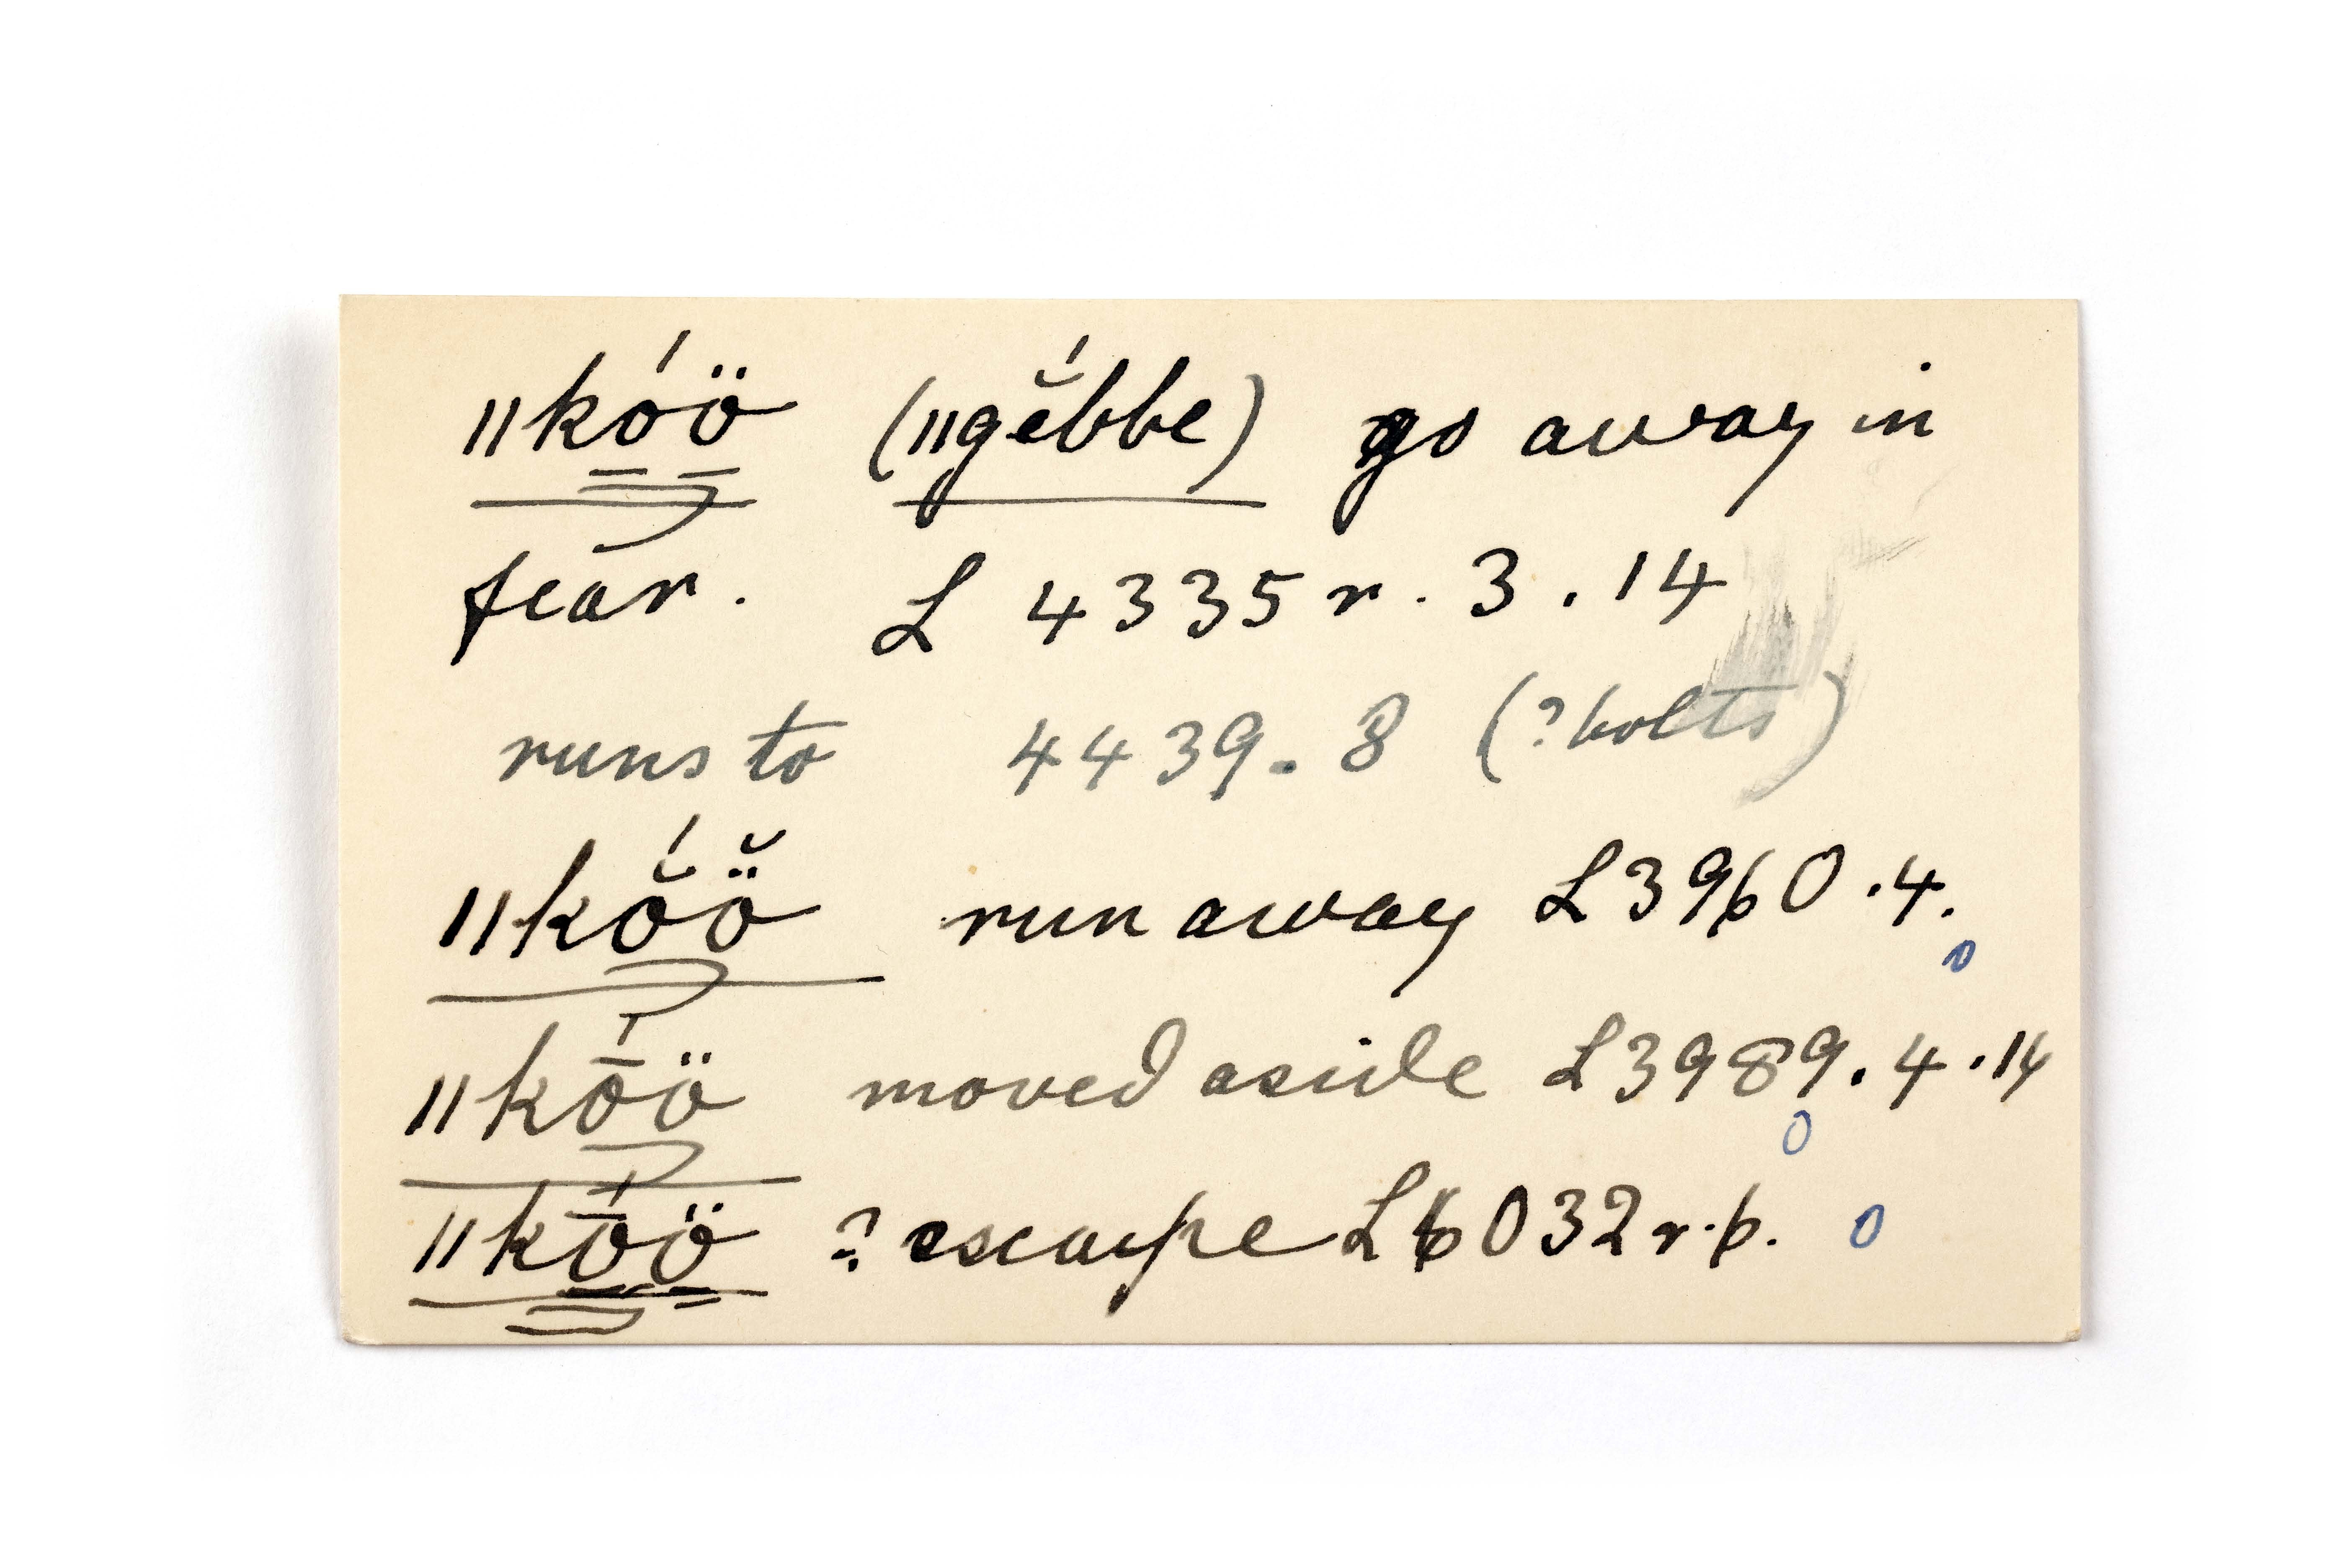 ǁkóö (ǁgĕ́bbe) go away in
fear. L 4335 r. 3.14
runs to 4439.8 (? bolts)
ǁkŏ́ö̆ run away L3960.4.
0
ǁkṓö moved aside L3989.4.14
0
ǁkṓö ? escape L6032 r.6. 0